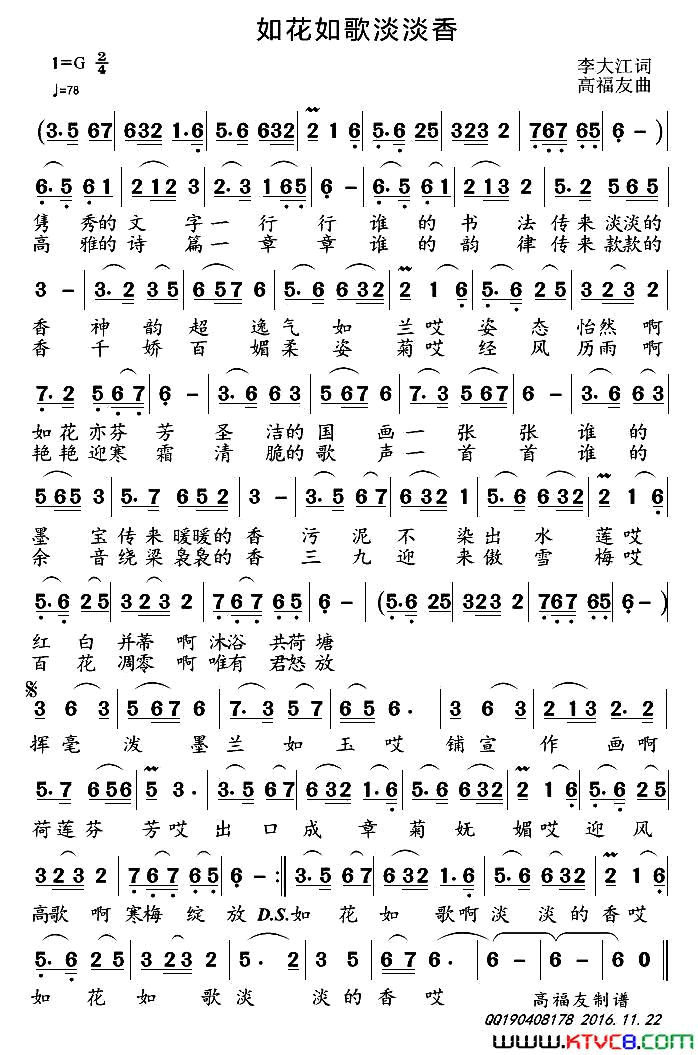 如花如歌淡淡香
1=G 2/4
♩=78
李大江词
高福友曲
(3.5 67 | 632 1.6 | 5.6 632 | 2 1 6 | 5.6 25 | 323 2 | 767 65 | 6 - )
6.5 61 | 212 3 | 2.3 165 | 6 - | 6.5 61 | 2 213 | 5.2 565 |
隽秀的文字一行行谁的书法传来淡淡的
高雅的诗篇一章章谁的韵律传来款款的
3 - | 3.2 35 | 6576 | 5.6 632 | 2 1 6 | 5.6 25 | 3232 |
香神韵超逸气如兰哎姿态怡然啊
香千娇百媚柔姿菊哎经风历雨啊
7.2 567 | 6 - | 3.6 63 | 567 6 | 7.3 567 | 6 - | 3.6 63 |
如花亦芬芳圣洁的国画一张张谁的
艳艳迎寒霜清脆的歌声一首首谁的
5653 | 5.7 652 | 3 - | 3.5 67 | 632 1 | 5.6 632 | 2 1 6 |
墨宝传来暖暖的香污泥不染出水莲哎
余音绕梁袅袅的香三九迎来傲雪梅哎
5.6 25 | 323 2 | 767 65 | 6 - | (5.6 25 | 323 2 | 767 65 | 6 - ) |
红白并蒂啊沐浴共荷塘
百花凋零啊唯有君怒放
3 6 3 | 567 6 | 7.3 57 | 65 6. | 3 6 3 | 213 2.2 |
挥毫泼墨兰如玉哎铺宣作画啊
5.7 656 | 5 3. | 3.5 67 | 632 1.6 | 5.6 632 | 2 1 6 | 5.6 25 |
荷莲芬芳哎出口成章菊妩媚哎迎风
3232 | 767 65 | 6 - :‖ 3.5 67 | 632 1.6 | 5.6 632 | 2 1 6 |
高歌啊寒梅绽放 D.S.如花如歌啊淡淡的香哎
5.6 25 | 323 2 | 5. 2 | 3 5 | 676 6 | 6 - | 6 - ‖
如花如歌淡淡的香哎
高福友制谱
QQ190408178 2016.11.22
www.KTVC8.com